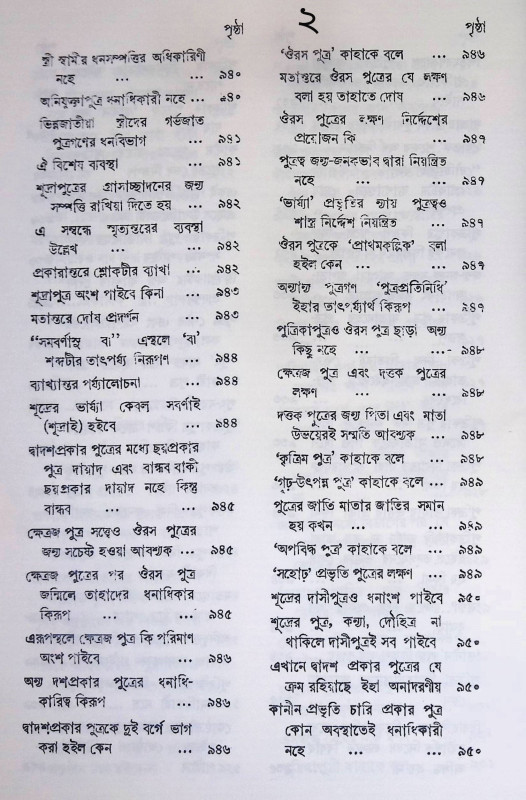 ২
পৃষ্ঠা
স্ত্রী স্বামীর ধনসম্পত্তির অধিকারিণী
নহে ... ... ৯৪০
অনিযুক্তাপুত্র ধনাধিকারী নহে ... ৯৪০
ভিন্নজাতীয়া স্ত্রীদের গর্ভজাত
পুত্রগণের ধনবিভাগ ... ৯৪১
ঐ বিশেষ ব্যবস্থা ... ৯৪১
শূদ্রাপুত্রের গ্রাসাচ্ছাদনের জন্য
সম্পত্তি রাখিয়া দিতে হয় ... ৯৪২
এ সম্বন্ধে স্মৃত্যন্তরের ব্যবস্থা
উল্লেখ ... ... ৯৪২
প্রকারান্তরে শ্লোকটীর ব্যাখা ... ৯৪২
শূদ্রাপুত্র অংশ পাইবে কিনা ... ৯৪৩
মতান্তরে দোষ প্রদর্শন ... ৯৪৩
“সমবর্ণাসু বা” এস্থলে ‘বা’
শব্দটীর তাৎপর্য্য নিরূপণ ... ৯৪৪
ব্যাখ্যান্তর পর্য্যালোচনা ... ৯৪৪
শূদ্রের ভার্য্যা কেবল সবর্ণাই
(শূদ্রাই) হইবে ... ৯৪৪
দ্বাদশপ্রকার পুত্রের মধ্যে ছয়প্রকার
পুত্র দায়াদ এবং বান্ধব বাকী
ছয়প্রকার দায়াদ নহে কিন্তু
বান্ধব ... ... ৯৪৫
ক্ষেত্রজ পুত্র সত্ত্বেও ঔরস পুত্রের
জন্য সচেষ্ট হওয়া আবশ্যক ... ৯৪৫
ক্ষেত্রজ পুত্রের পর ঔরস পুত্র
জন্মিলে তাহাদের ধনাধিকার
কিরূপ ... ... ৯৪৫
এরূপস্থলে ক্ষেত্রজ পুত্র কি পরিমাণ
অংশ পাইবে ... ৯৪৬
অন্য দশপ্রকার পুত্রের ধনাধি-
কারিত্ব কিরূপ ... ৯৪৬
দ্বাদশপ্রকার পুত্রকে দুই বর্গে ভাগ
করা হইল কেন ... ৯৪৬
পৃষ্ঠা
‘ঔরস পুত্র’ কাহাকে বলে ... ৯৪৬
মতান্তরে ঔরস পুত্রের যে লক্ষণ
বলা হয় তাহাতে দোষ ... ৯৪৬
ঔরস পুত্রের লক্ষণ নির্দ্দেশের
প্রয়োজন কি ... ৯৪৭
পুত্রত্ব জন্য-জনকভাব দ্বারা নিয়ন্ত্রিত
নহে ... ... ৯৪৭
‘ভার্য্যা’ প্রভৃতির ন্যায় পুত্রত্বও
শাস্ত্র নির্দ্দেশ নিয়ন্ত্রিত ... ৯৪৭
ঔরস পুত্রকে ‘প্রাথমকল্পিক’ বলা
হইল কেন ... ... ৯৪৭
অন্যান্য পুত্রগণ ‘পুত্রপ্রতিনিধি’
ইহার তাৎপর্য্যার্থ কিরূপ ... ৯৪৭
পুত্রিকাপুত্রও ঔরস পুত্র ছাড়া অন্য
কিছু নহে ... ... ৯৪৮
ক্ষেত্রজ পুত্র এবং দত্তক পুত্রের
লক্ষণ ... ... ৯৪৮
দত্তক পুত্রের জন্য পিতা এবং মাতা
উভয়েরই সম্মতি আবশ্যক ... ৯৪৮
‘কৃত্রিম পুত্র’ কাহাকে বলে ... ৯৪৮
‘গূঢ়-উৎপন্ন পুত্র’ কাহাকে বলে ... ৯৪৯
পুত্রের জাতি মাতার জাতির সমান
হয় কখন ... ... ৯৪৯
‘অপবিদ্ধ পুত্র’ কাহাকে বলে ... ৯৪৯
‘সহোঢ়’ প্রভৃতি পুত্রের লক্ষণ ... ৯৪৯
শূদ্রের দাসীপুত্রও ধনাংশ পাইবে ৯৫০
শূদ্রের পুত্র, কন্যা, দৌহিত্র না
থাকিলে দাসীপুত্রই সব পাইবে ৯৫০
এখানে দ্বাদশ প্রকার পুত্রের যে
ক্রম রহিয়াছে ইহা অনাদরণীয় ৯৫০
কানীন প্রভৃতি চারি প্রকার পুত্র
কোন অবস্থাতেই ধনাধিকারী
নহে ... ... ৯৫০